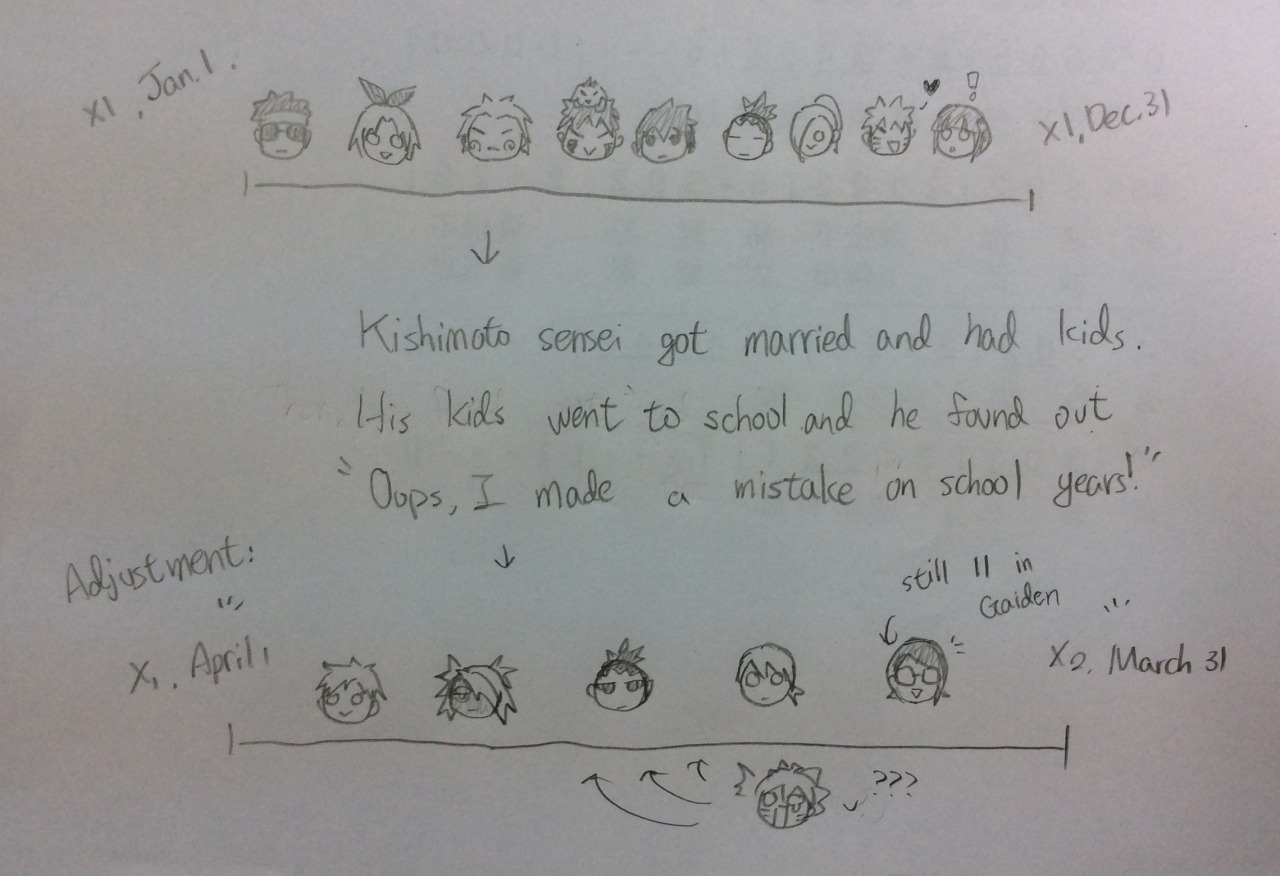 X1, Jan. 1.
X1, Dec. 31
!
Kishimoto sensei got married and had kids.
His kids went to school and he found out
"Oops, I made a mistake on school years!"
Adjustment:
still 11 in
Gaiden
X1, April 1
X2, March 31
???